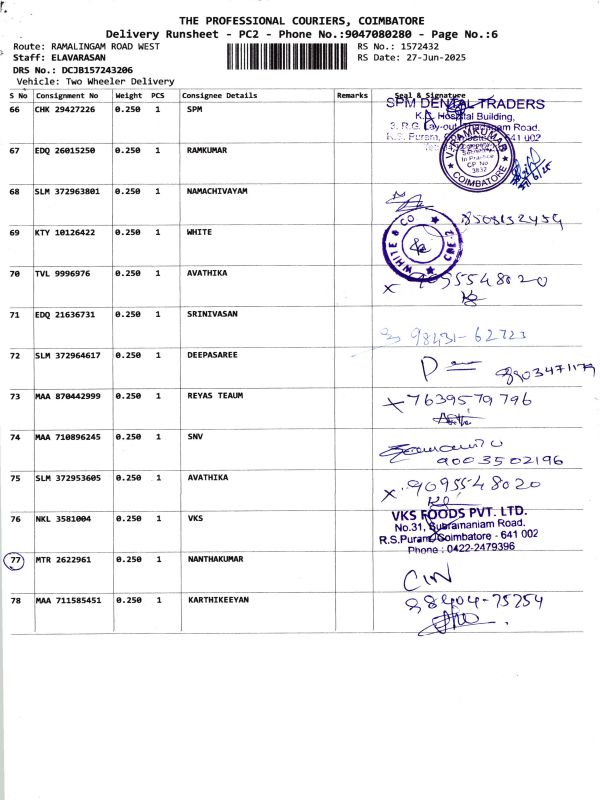 THE PROFESSIONAL COURIERS, COIMBATORE
Delivery Runsheet - PC2 - Phone No.:9047080280 - Page No.:6
Route: RAMALINGAM ROAD WEST RS No.: 1572432
Staff: ELAVARASAN RS Date: 27-Jun-2025
DRS No.: DCJB157243206
Vehicle: Two Wheeler Delivery
S No Consignment No Weight PCS Consignee Details Remarks Seal & Signature
66 CHK 29427226 0.250 1 SPM
SPM DENTAL TRADERS
K.G. Hospital Building,
3, R.G. Lay-out, Road.
R.S. Puram, 641 002
67 EDQ 26015250 0.250 1 RAMKUMAR
V. RAMKUMAR
Company Secretary
In Practice
CP No
3832
COIMBATORE
68 SLM 372963801 0.250 1 NAMACHIVAYAM
8508132454
69 KTY 10126422 0.250 1 WHITE
WHITE & CO
CBE-2
70 TVL 9996976 0.250 1 AVATHIKA
x 9095548020
71 EDQ 21636731 0.250 1 SRINIVASAN
98431-62723
72 SLM 372964617 0.250 1 DEEPASAREE
8903471179
73 MAA 870442999 0.250 1 REYAS TEAUM
x 7639579796
74 MAA 710896245 0.250 1 SNV
9003502196
75 SLM 372953605 0.250 1 AVATHIKA
x 9095548020
76 NKL 3581004 0.250 1 VKS
VKS FOODS PVT. LTD.
No.31, Subramaniam Road.
R.S.Puram, Coimbatore - 641 002
Phone : 0422-2479396
77 MTR 2622961 0.250 1 NANTHAKUMAR
CIN
78 MAA 711585451 0.250 1 KARTHIKEEYAN
98404-75254